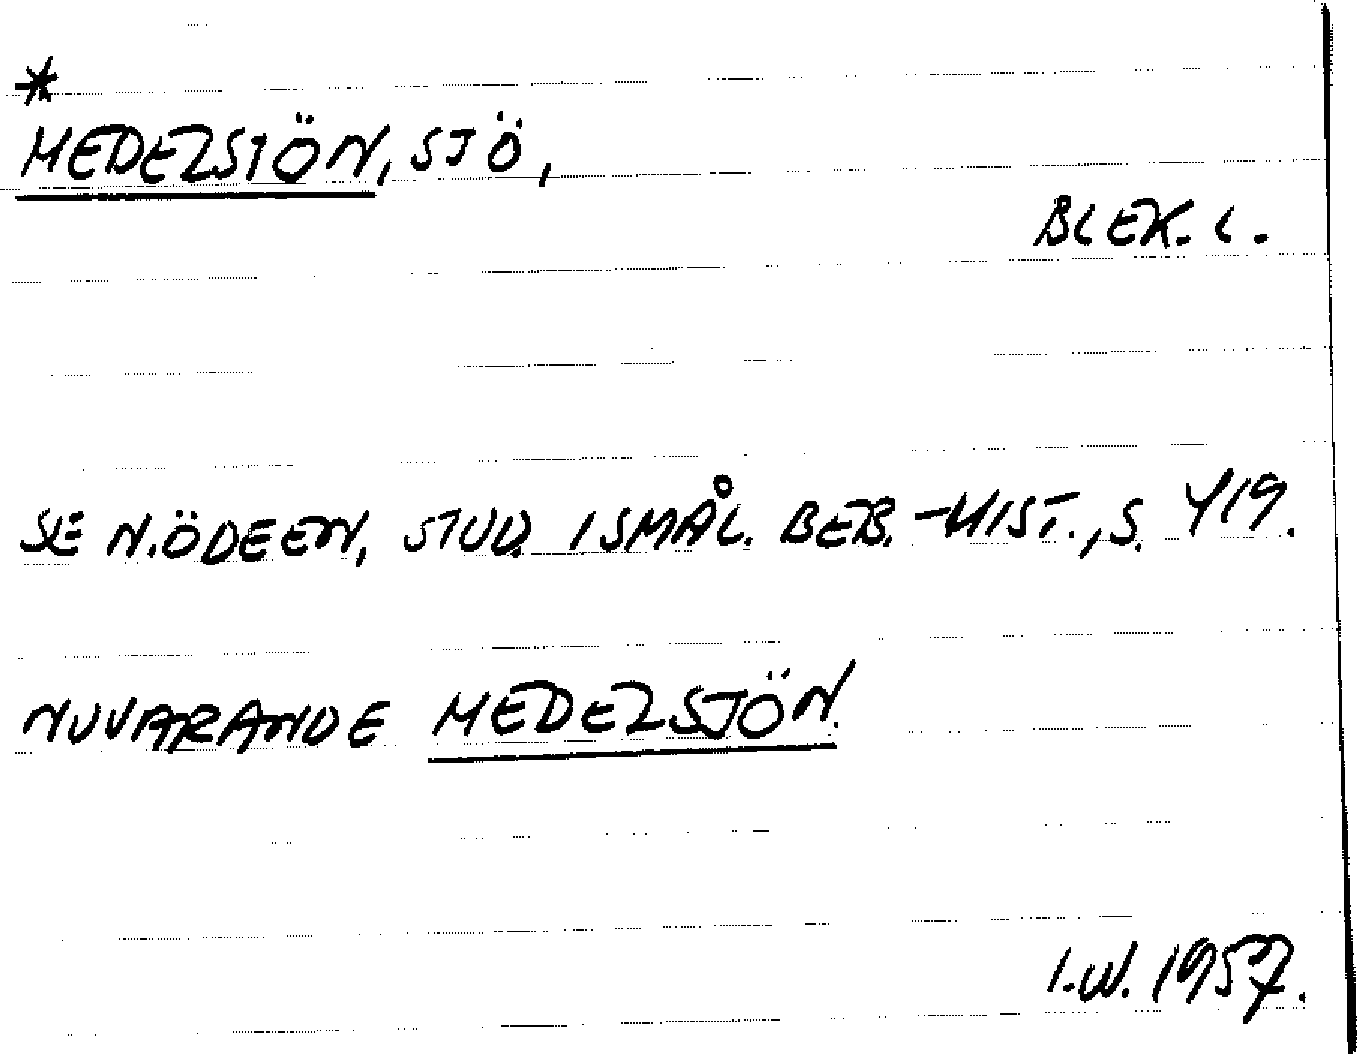 *
MEDELSJÖN, SJÖ,
BLEK. L.
SE N. ÖDEEN, STUD. I SMÅL. BEB.-HIST., S. 419.
NUVARANDE MEDELSJÖN.
I.W. 1957.